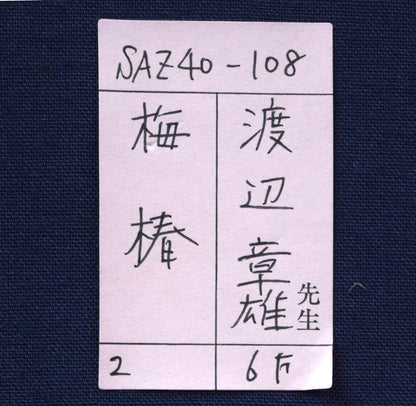 SAZ40-108
渡辺章雄先生
梅椿
2
6F